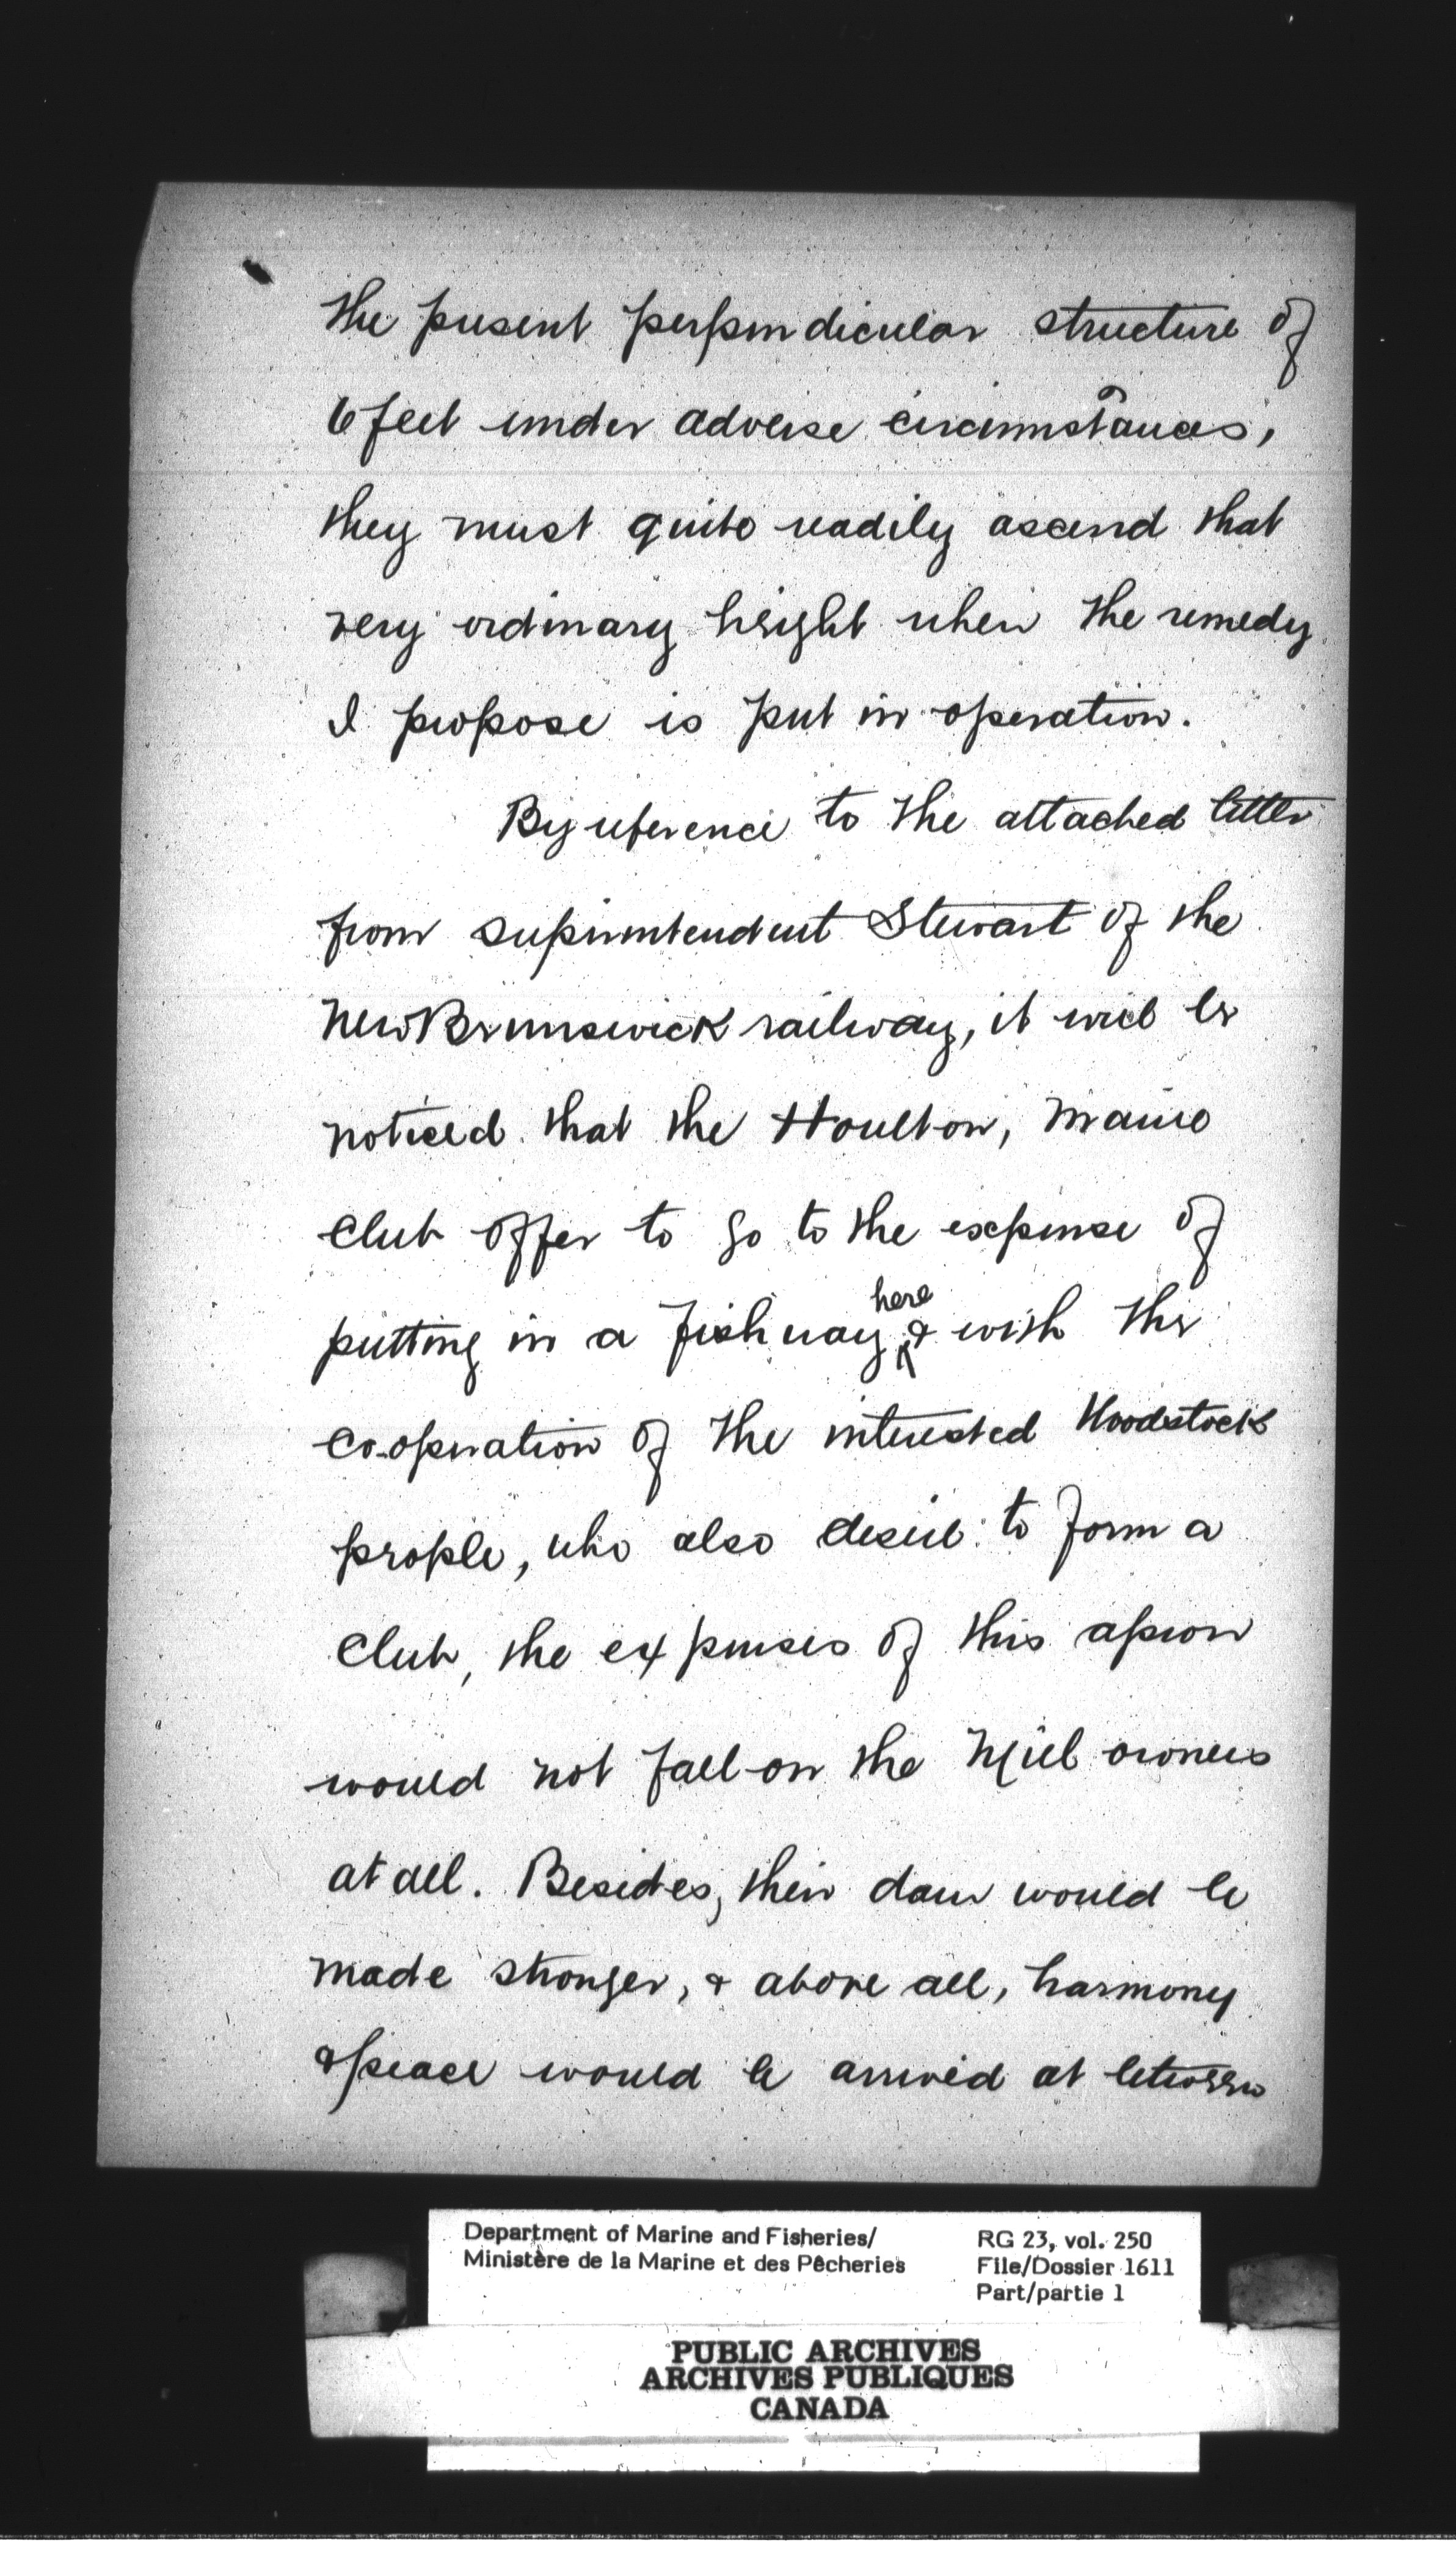 the present perpendicular structure of
6 feet under adverse circumstances,
they must quite readily ascend that
very ordinary height when the remedy
I propose is put in operation.
By reference to the attached letter
from superintendent Stewart of the
New Brunswick railway, it will be
noticed that the Houlton, Maine
Club offer to go to the expense of
putting in a fishway here & with the
co-operation of the interested Woodstock
people, who also desire to form a
Club, the expenses of this apron
would not fall on the Mill owners
at all. Besides, their dam would be
made stronger, & above all, harmony
& peace would be arrived at between
Department of Marine and Fisheries/
Ministère de la Marine et des Pêcheries
RG 23, vol. 250
File/Dossier 1611
Part/partie 1
PUBLIC ARCHIVES
ARCHIVES PUBLIQUES
CANADA